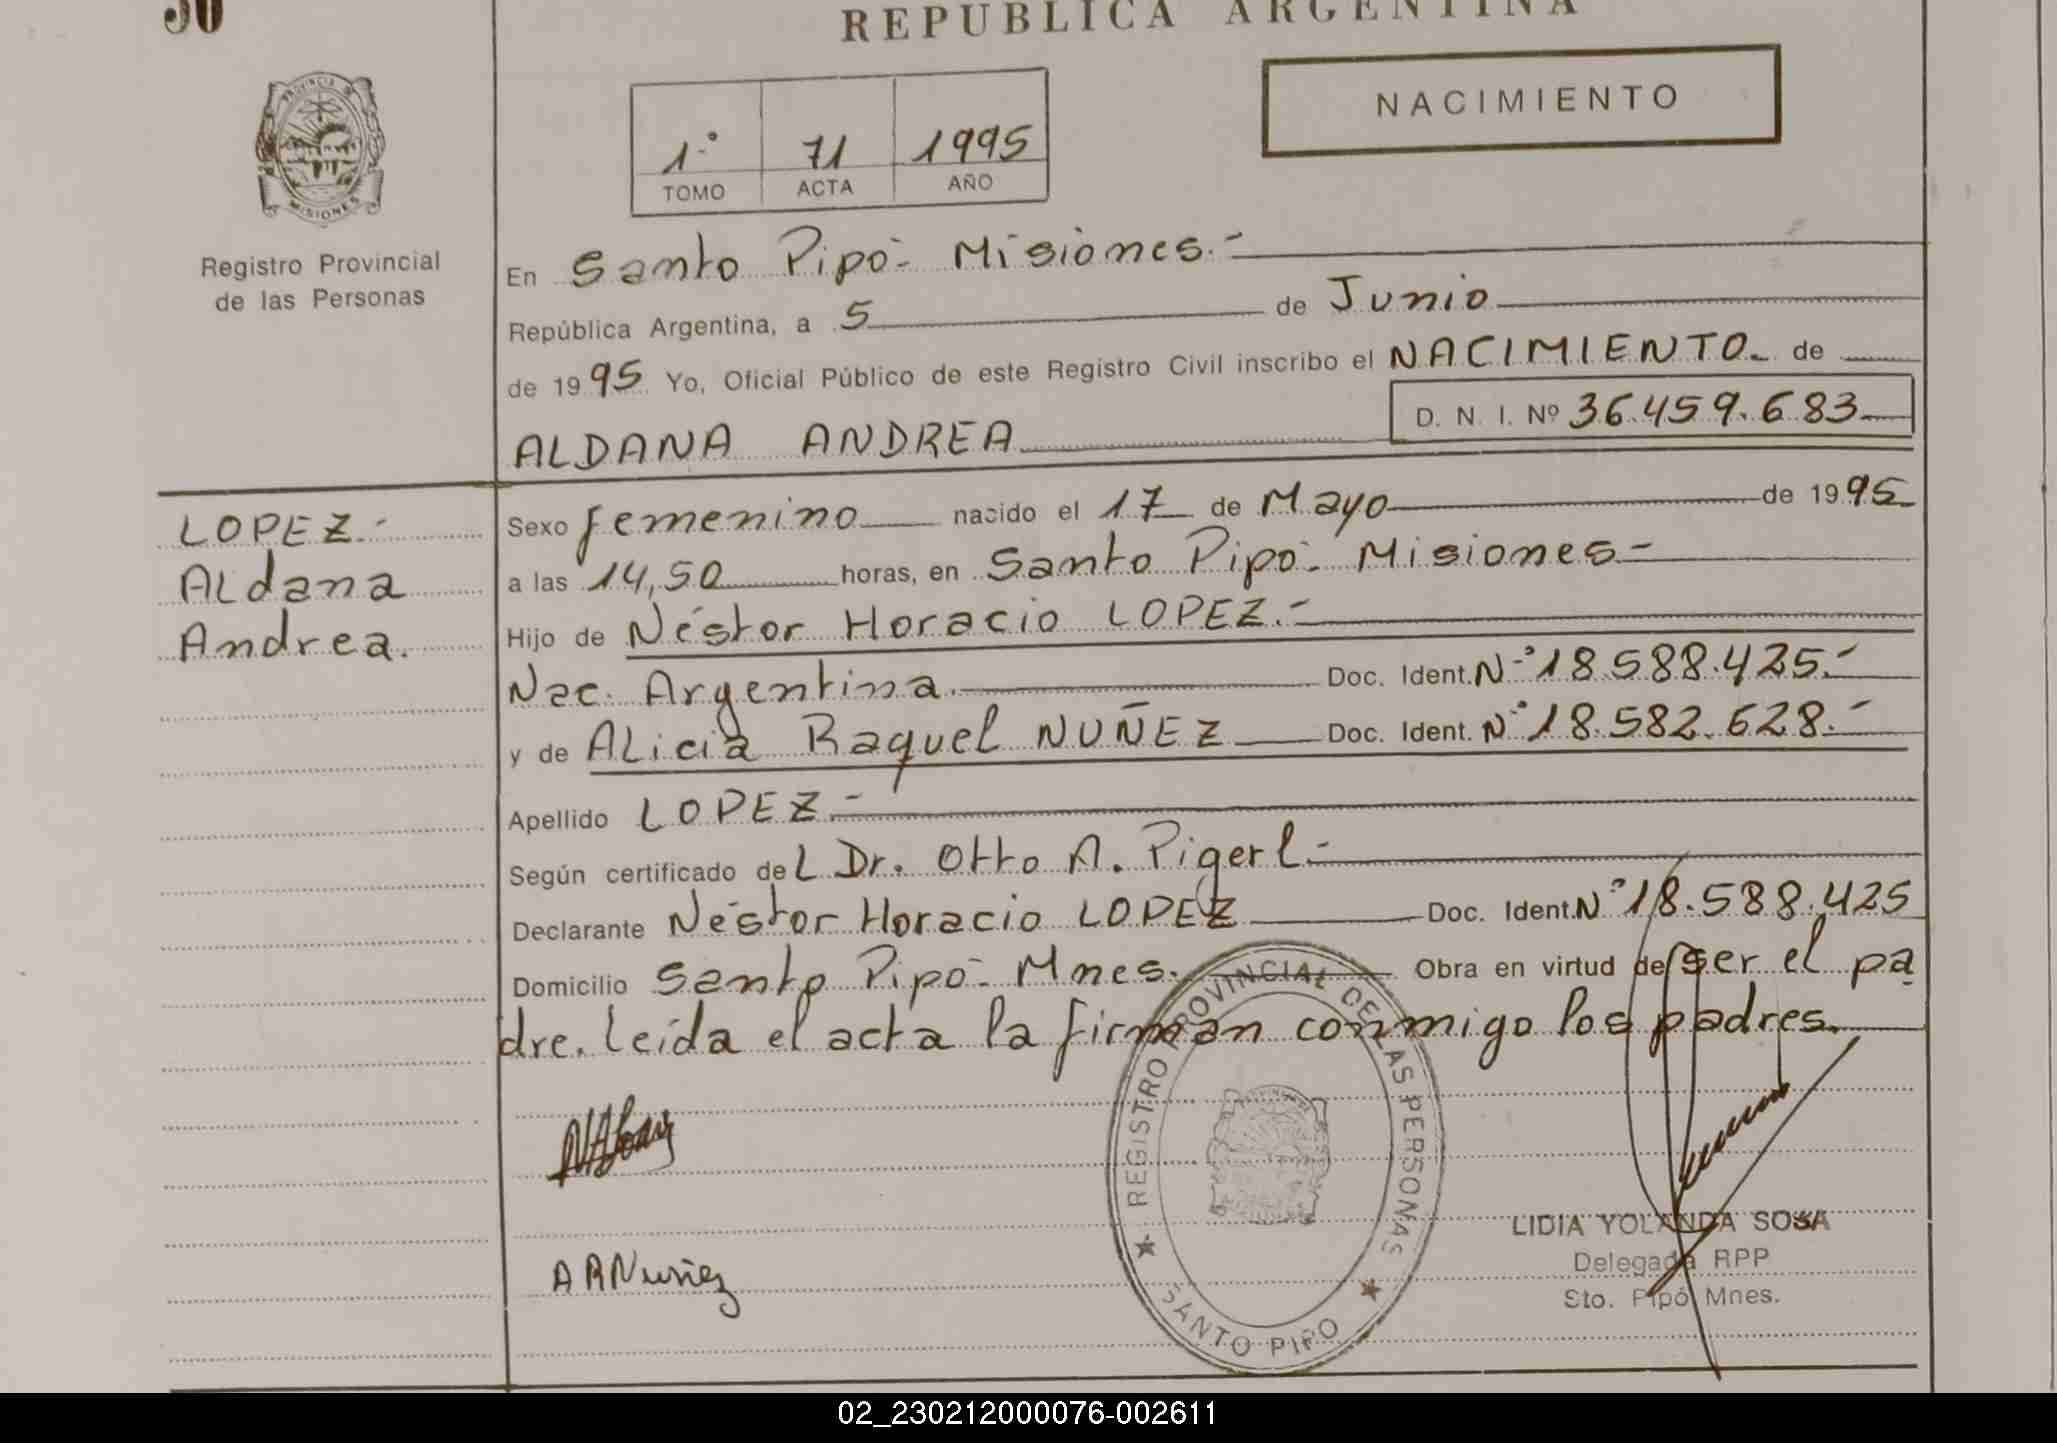 REPUBLICA ARGENTINA
NACIMIENTO
1º 71 1995
TOMO ACTA AÑO
PROVINCIA DE
MISIONES
Registro Provincial
de las Personas
En Santo Pipó- Misiones.-
República Argentina, a 5 de Junio
de 1995 Yo, Oficial Público de este Registro Civil inscribo el NACIMIENTO. de
D. N. I. Nº 36.459.683
ALDANA ANDREA
LOPEZ.-
ALdana
Andrea.
Sexo femenino nacido el 17 de Mayo de 1995
a las 14,50 horas, en Santo Pipó- Misiones-
Hijo de Néstor Horacio LOPEZ.-
Nac. Argentina. Doc. Ident. Nº 18.588.425.-
y de ALicia Raquel NUÑEZ Doc. Ident. Nº 18.582.628.-
Apellido LOPEZ-
Según certificado deL Dr. Otto A. Pigerl-
Declarante Néstor Horacio LOPEZ Doc. Ident. Nº 18.588.425
Domicilio Santo Pipó- Mnes. Obra en virtud de ser el pa
dre. Leída el acta la firman conmigo los padres.
REGISTRO PROVINCIAL DE LAS PERSONAS
SANTO PIPO
A R Nuñez
LIDIA YOLANDA SOSA
Delegada RPP
Sto. Pipó Mnes.
02_230212000076-002611